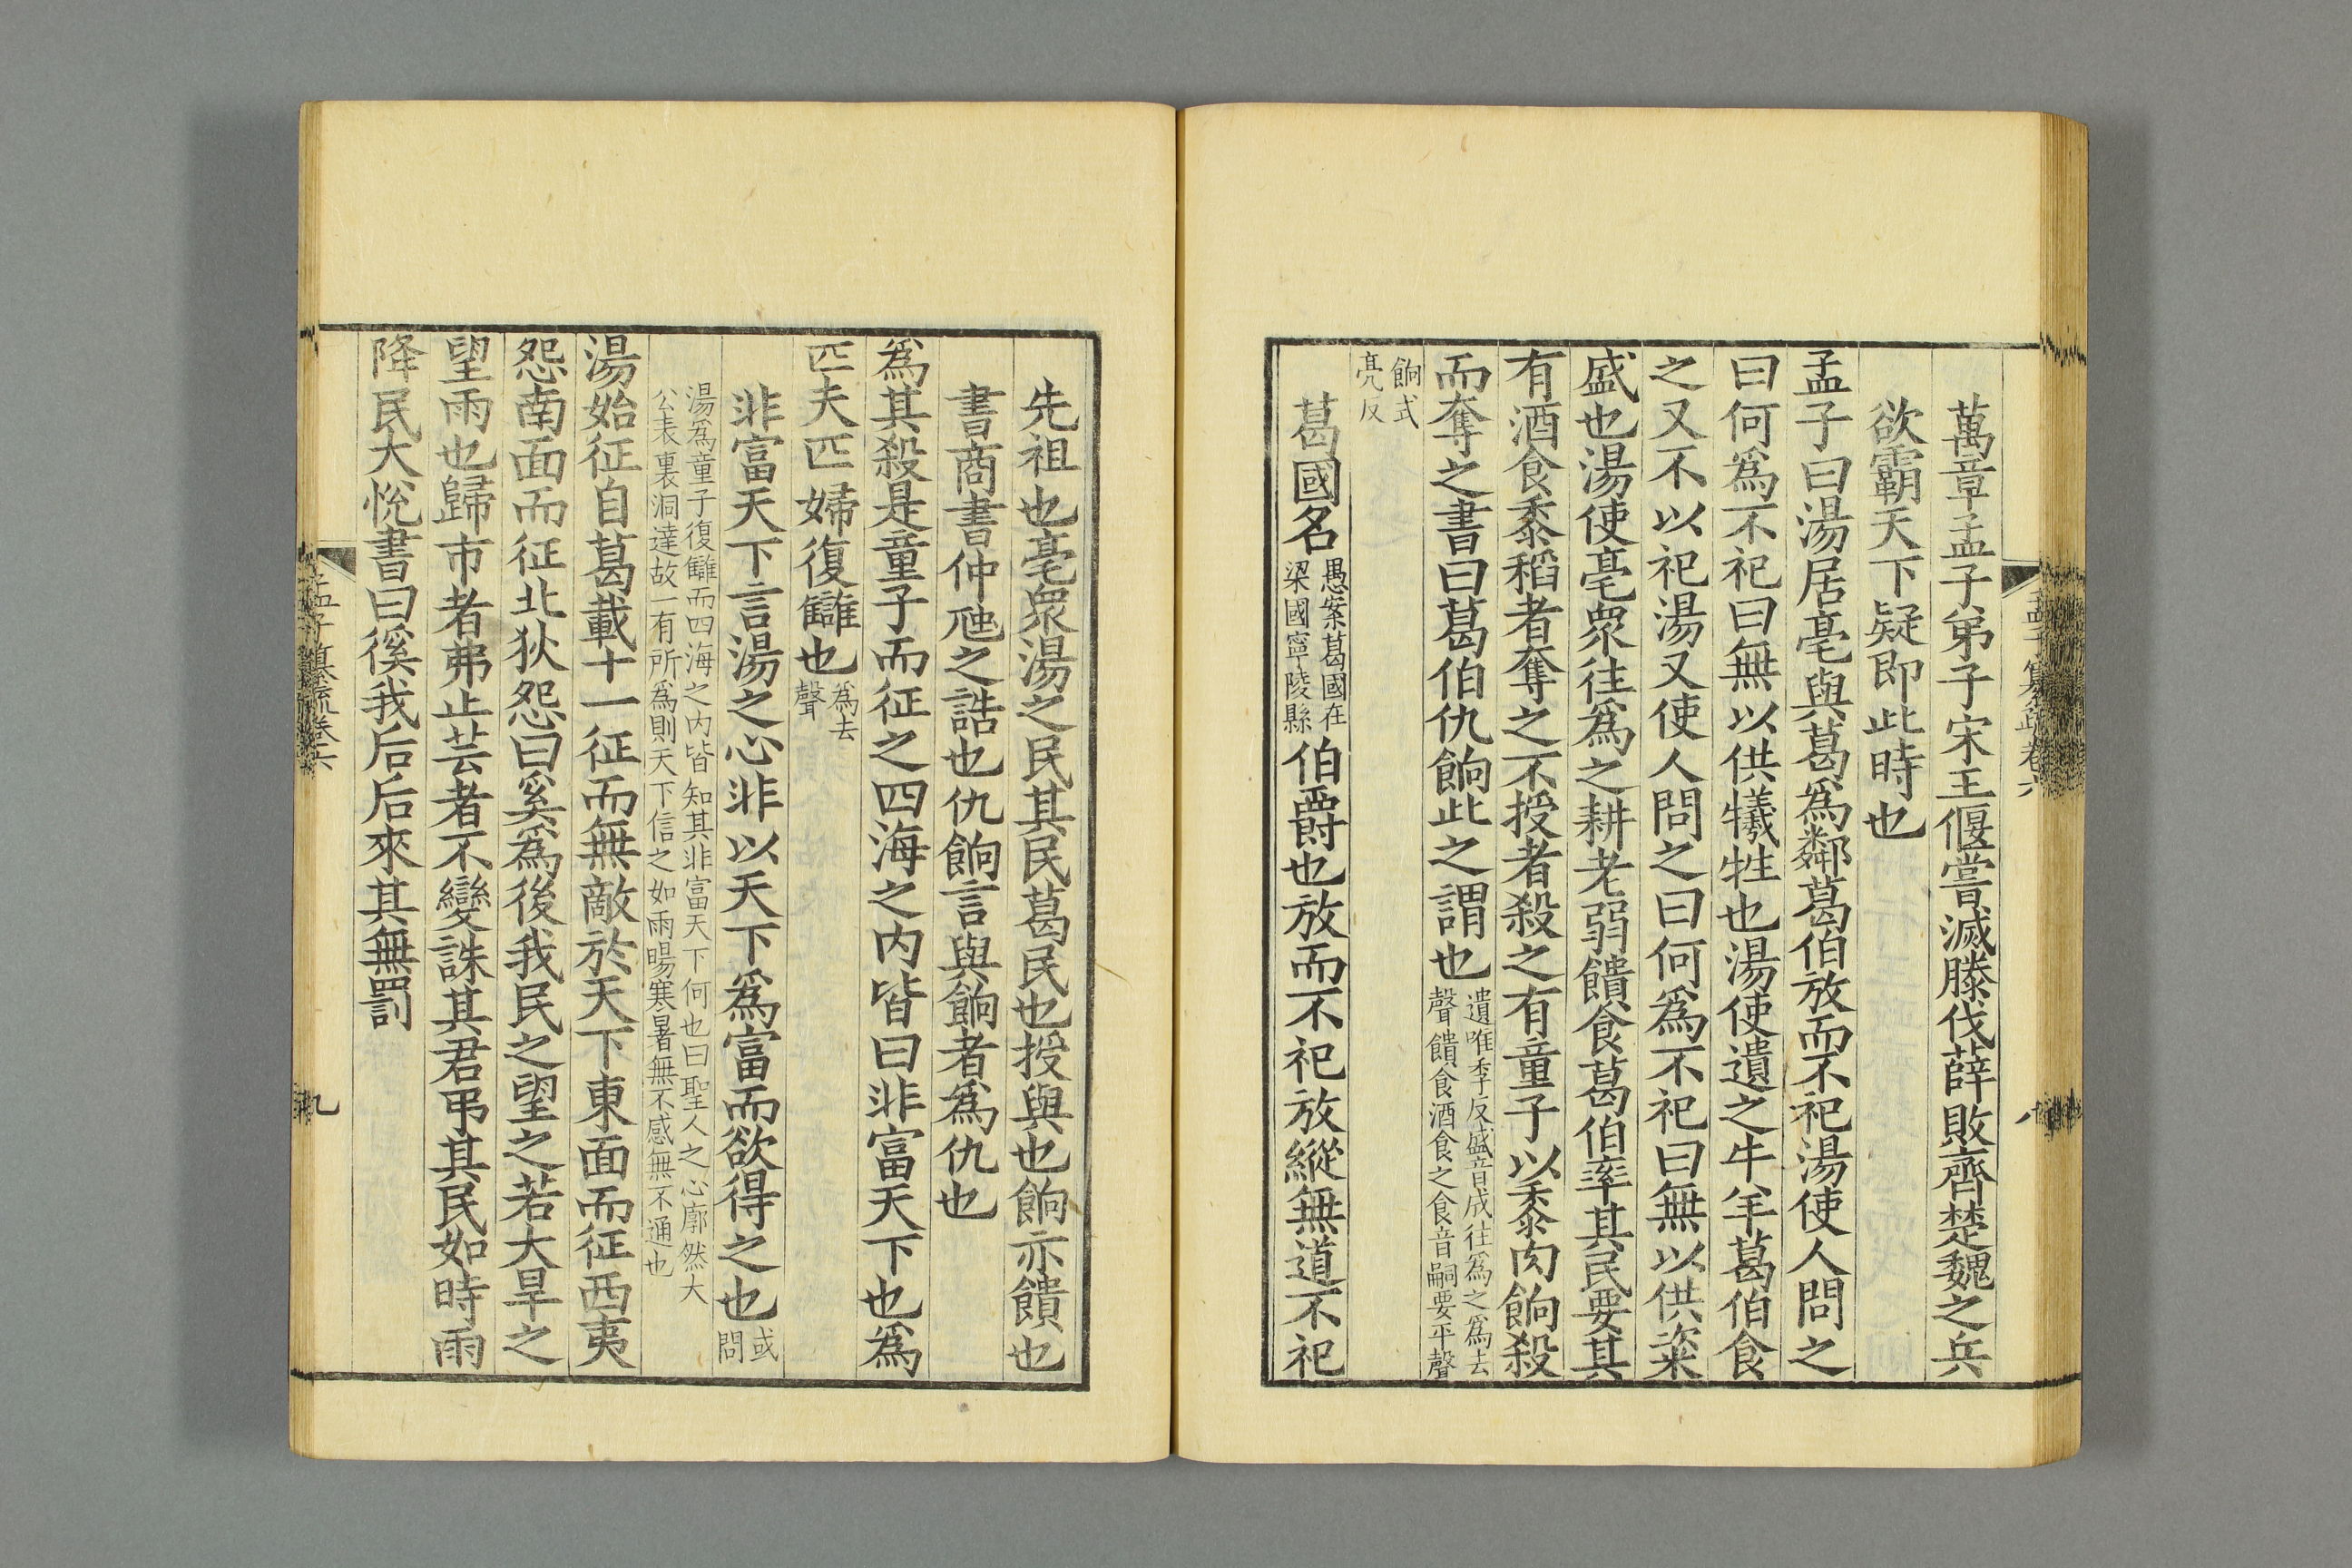 孟子纂疏卷六
八
萬章孟子弟子宋王偃嘗滅滕伐薛敗齊楚魏之兵
欲霸天下疑即此時也
孟子曰湯居亳與葛爲鄰葛伯放而不祀湯使人問之
曰何爲不祀曰無以供犧牲也湯使遺之牛羊葛伯食
之又不以祀湯又使人問之曰何爲不祀曰無以供粢
盛也湯使亳衆往爲之耕老弱饋食葛伯率其民要其
有酒食黍稻者奪之不授者殺之有童子以黍肉餉殺
而奪之書曰葛伯仇餉此之謂也
遺唯季反盛音成往爲之爲去
聲饋食酒食之食音嗣要平聲
餉式
亮反
葛國名
愚案葛國在
梁國寧陵縣
伯爵也放而不祀放縱無道不祀
先祖也亳衆湯之民其民葛民也授與也餉亦饋也
書商書仲虺之誥也仇餉言與餉者爲仇也
爲其殺是童子而征之四海之内皆曰非富天下也爲
匹夫匹婦復讎也
爲去
聲
非富天下言湯之心非以天下爲富而欲得之也
或
問
湯爲童子復讎而四海之内皆知其非富天下何也曰聖人之心廓然大
公表裏洞達故一有所爲則天下信之如雨暘寒暑無不感無不通也
湯始征自葛載十一征而無敵於天下東面而征西夷
怨南面而征北狄怨曰奚爲後我民之望之若大旱之
望雨也歸市者弗止芸者不變誅其君弔其民如時雨
降民大悅書曰徯我后后來其無罰
孟子纂疏卷六
九